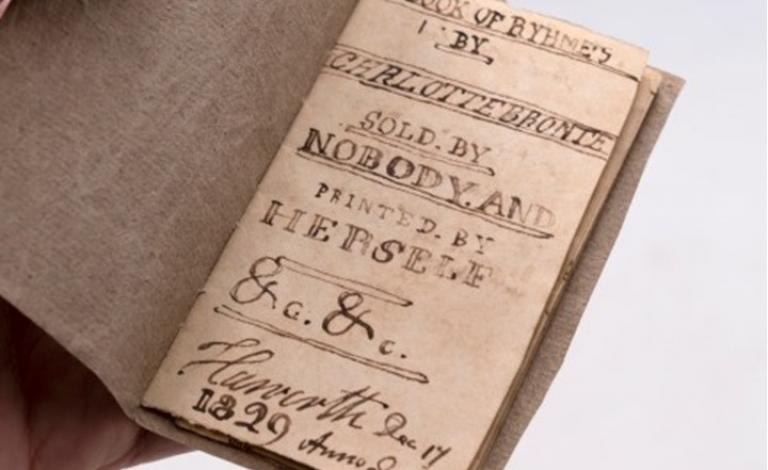 BOOK OF RYHMES
BY
CHARLOTTE BRONTE
SOLD. BY
NOBODY. AND
PRINTED. BY
HERSELF
&c. &c.
Haworth Dec 17
1829 Anno